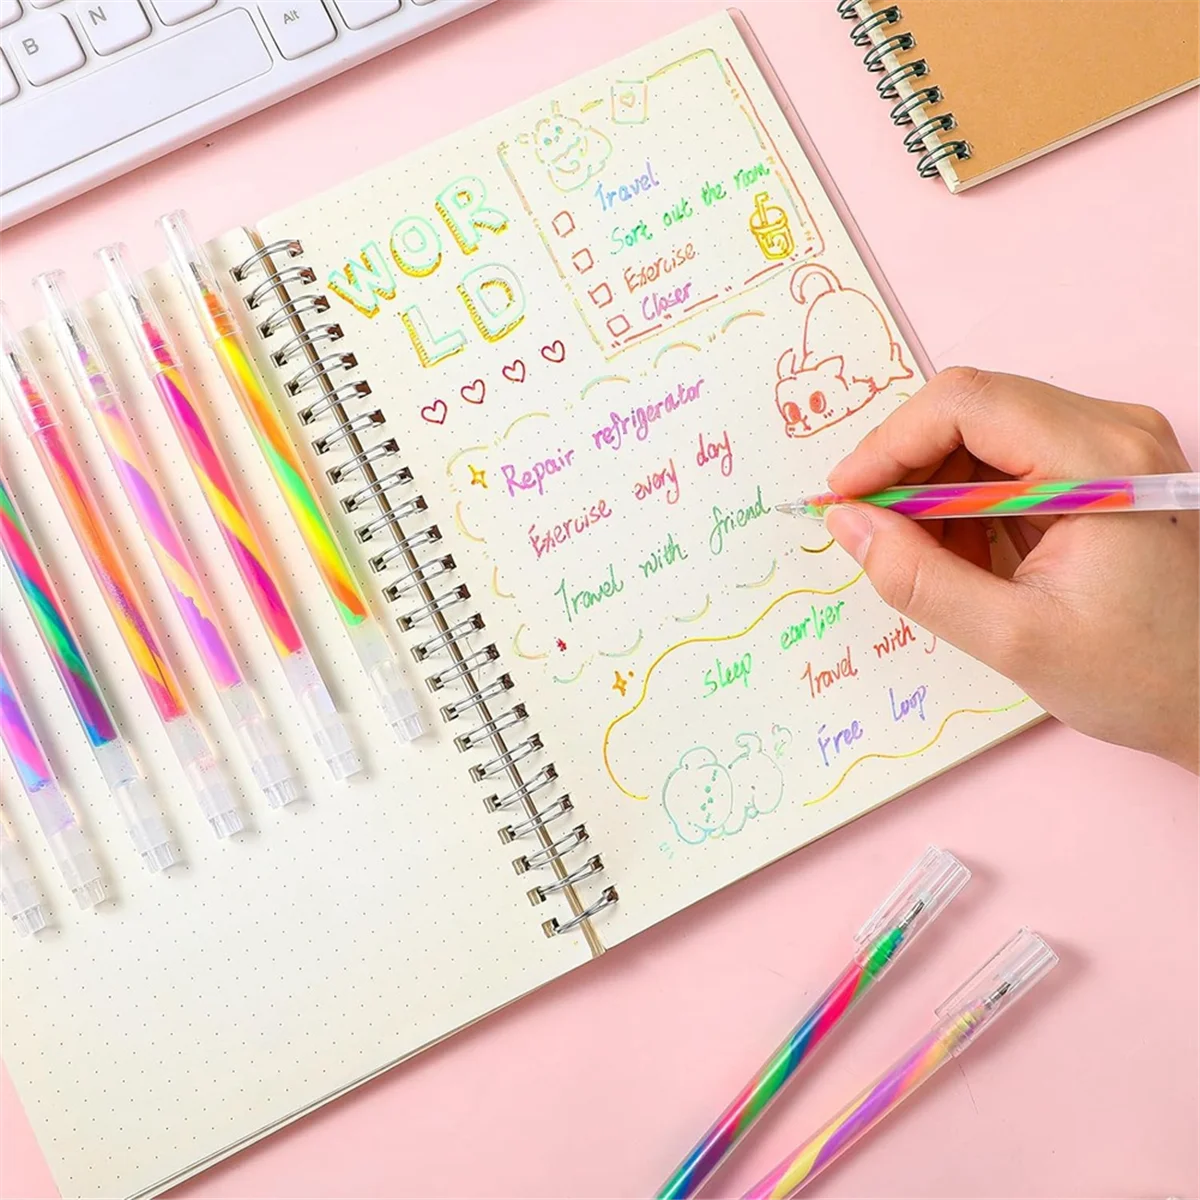 B
N
Alt
WOR
LD
Travel
Sort out the room
Exercise
Closer
Repair refrigerator
Exercise every day
Travel with friend
Sleep earlier
Travel with
Free Loop